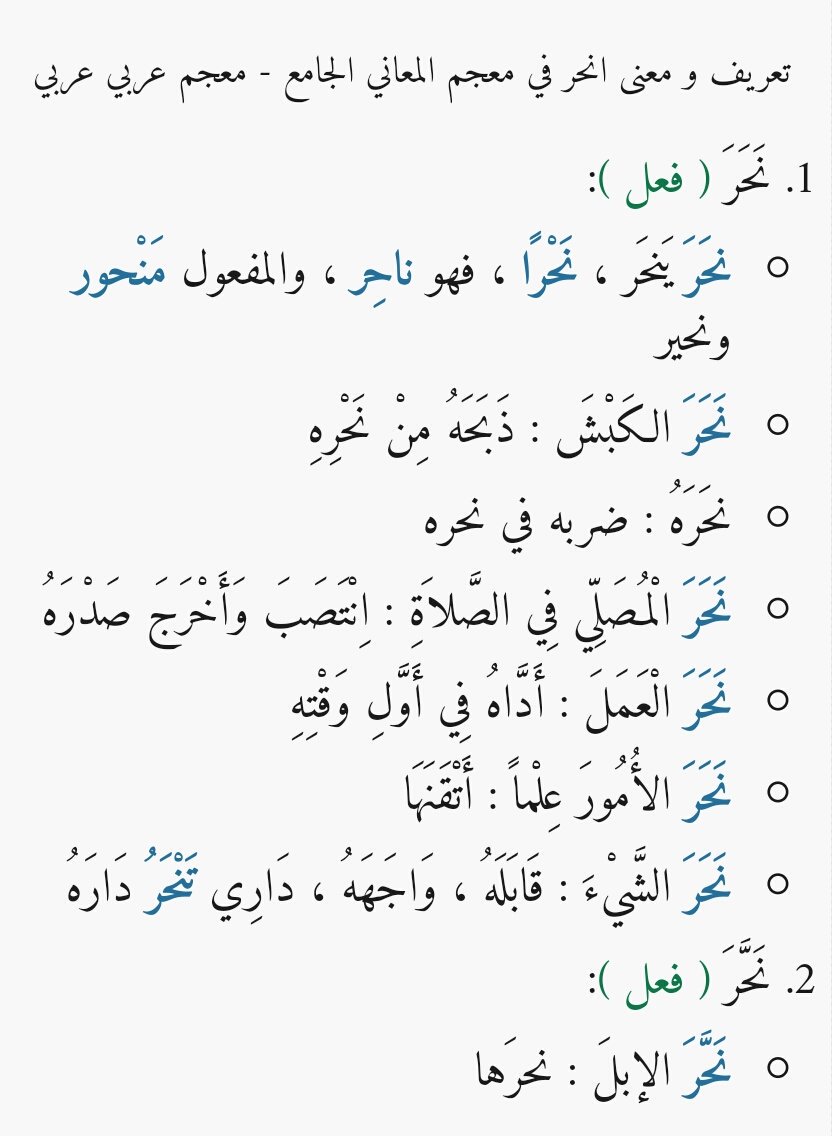 تعريف و معنى انحر في معجم المعاني الجامع - معجم عربي عربي
1. نَحَرَ ( فعل ):
نحَرَ يَنحَر ، نَحْرًا ، فهو ناحِر ، والمفعول مَنْحور
ونحير
نَحَرَ الكَبْشَ : ذَبَحَهُ مِنْ نَحْرِهِ
نحَرَهُ : ضربه في نحره
نَحَرَ الْمُصَلِّي فِي الصَّلاَةِ : اِنْتَصَبَ وَأَخْرَجَ صَدْرَهُ
نَحَرَ الْعَمَلَ : أَدَّاهُ فِي أَوَّلِ وَقْتِهِ
نَحَرَ الأُمُورَ عِلْماً : أَتْقَنَهَا
نَحَرَ الشَّيْءَ : قَابَلَهُ ، وَاجَهَهُ ، دَارِي تَنْحَرُ دَارَهُ
2. نَحَّرَ ( فعل ):
نَحَّرَ الإبلَ : نحرَها